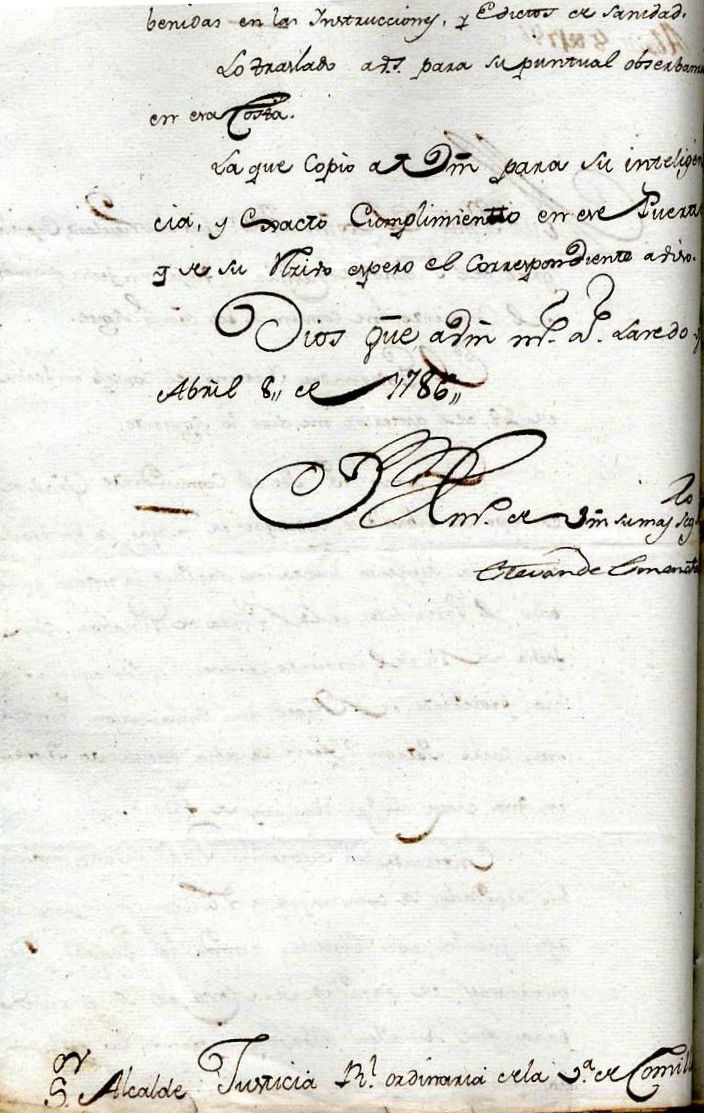 benidas en las Instrucciones, y Edictos de sanidad.
Lo traslado a Vs. para su puntual obserban
en esa Costa.
La que Copio a Vdm para su inteligen
cia, y Exacto Cumplimiento en ese Puerto
q de su Rzivo espero el Correspondiente adiso.
Dios gue a Vdm ms. as. Laredo y
Abril 8,, de 1786,,
BLmo. de Vm su mas seg
Estevan de
Sor. Alcalde Justicia Rl. ordinaria de la Va. de Comill